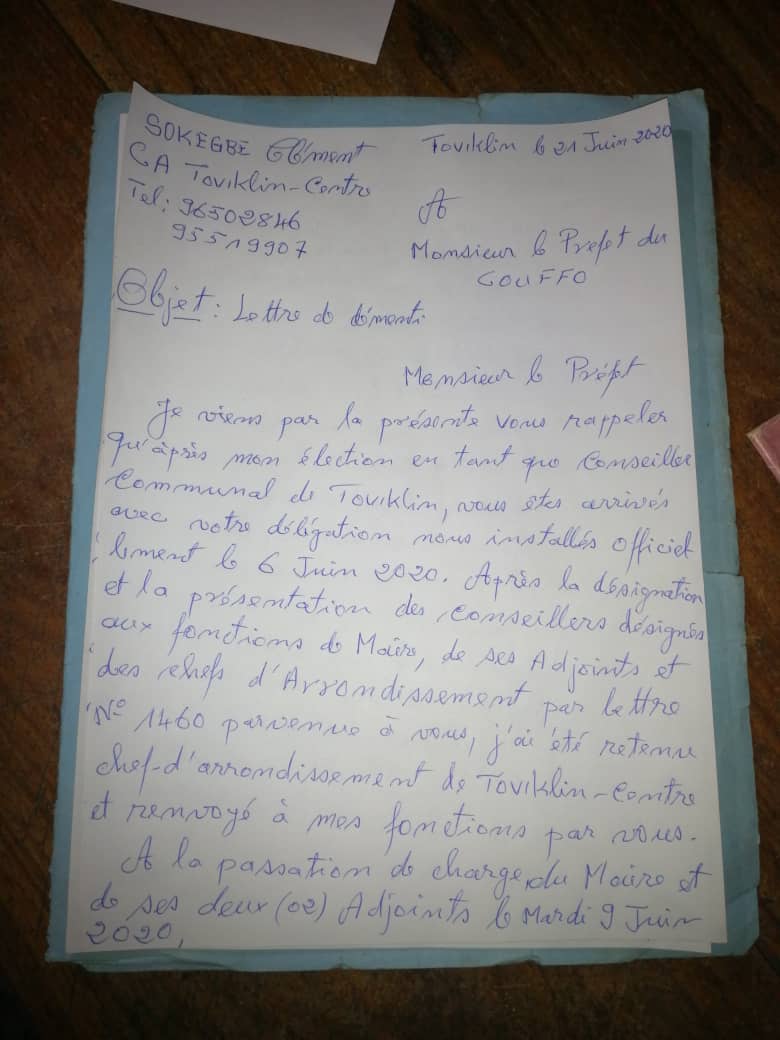 SOKEGBE Clément
CA Toviklin-Centre
Tel: 96502846
95519907
Toviklin le 21 Juin 2020
A
Monsieur le Prefet du
COUFFO
Objet: Lettre de démenti
Monsieur le Préfet
Je viens par la présente vous rappeler
qu'après mon élection en tant que Conseiller
Communal de Toviklin, vous êtes arrivés
avec votre délégation nous installés officiel
lement le 6 Juin 2020. Après la désignation
et la présentation des Conseillers désignés
aux fonctions de Maire, de ses Adjoints et
des chefs d'Arrondissement par lettre
N° 1460 parvenue à vous, j'ai été retenu
chef-d'arrondissement de Toviklin-Centre
et renvoyé à mes fonctions par vous.
A la passation de charge du Maire et
de ses deux (02) Adjoints le Mardi 9 Juin
2020,